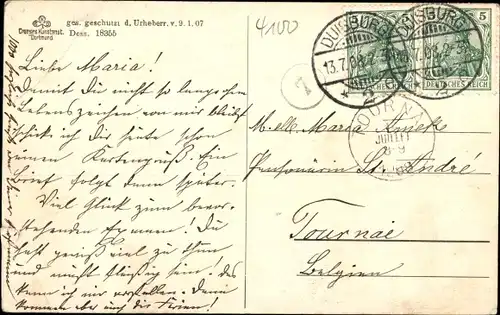 Dessins Kunstanst.
Dortmund
ges. geschützt d. Urheberr. v. 9. 1. 07
Dess. 18355
4100
DUISBURG
13.7.08.2-3N
DUISBURG
13.7.08.2-3N
5
DEUTSCHES REICH
2
TOURNAI
JUILLET
8-9
Liebe Maria!
Damit Du nicht so lang ohne
Lebenszeichen von mir bleibst
schicke ich Dir heute schon
einen Kartengruß. Ein
Brief folgt dann später.
Viel Glück zum bevor-
stehenden Examen. Du
hast gewiß viel zu thun
und mußt fleißig sein! Das
kann ich mir vorstellen. Dann
kommen aber auch die Ferien!
M.elle Maria
Pensionnaire St. André
Tournai
Belgien